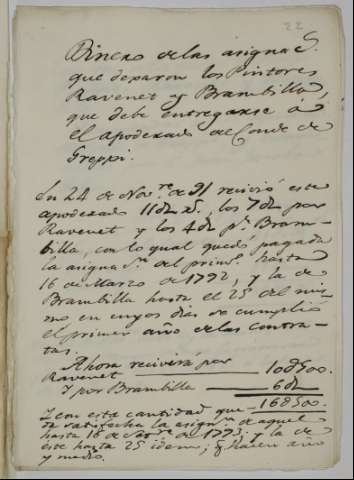 22
Dinero de las asignac.s
que dexaron los Pintores
Ravenet y Brambilla,
que debe entregarse á
el apoderado del Conde de
Greppi.
En 24 de Nov.re de 91 recivió este
apoderado 11d rs., los 7d por
Ravenet y los 4d p.r Bram-
billa, con lo qual quedó pagada
la asignac.n del prim.o hasta
16 de Marzo de 1792, y la de
Brambilla hasta el 25 del mis-
mo en cuyos dias se cumplió
el primer año de las contra-
tas.
Ahora recivirá por
Ravenet 10d500.
Y por Brambilla 6d
16d500.
Y con esta cantidad que-
da satisfecha la asign.n de aquel
hasta 16 de de 1793, y la de
este hasta 25 idem; q.e hacen año
y medio.